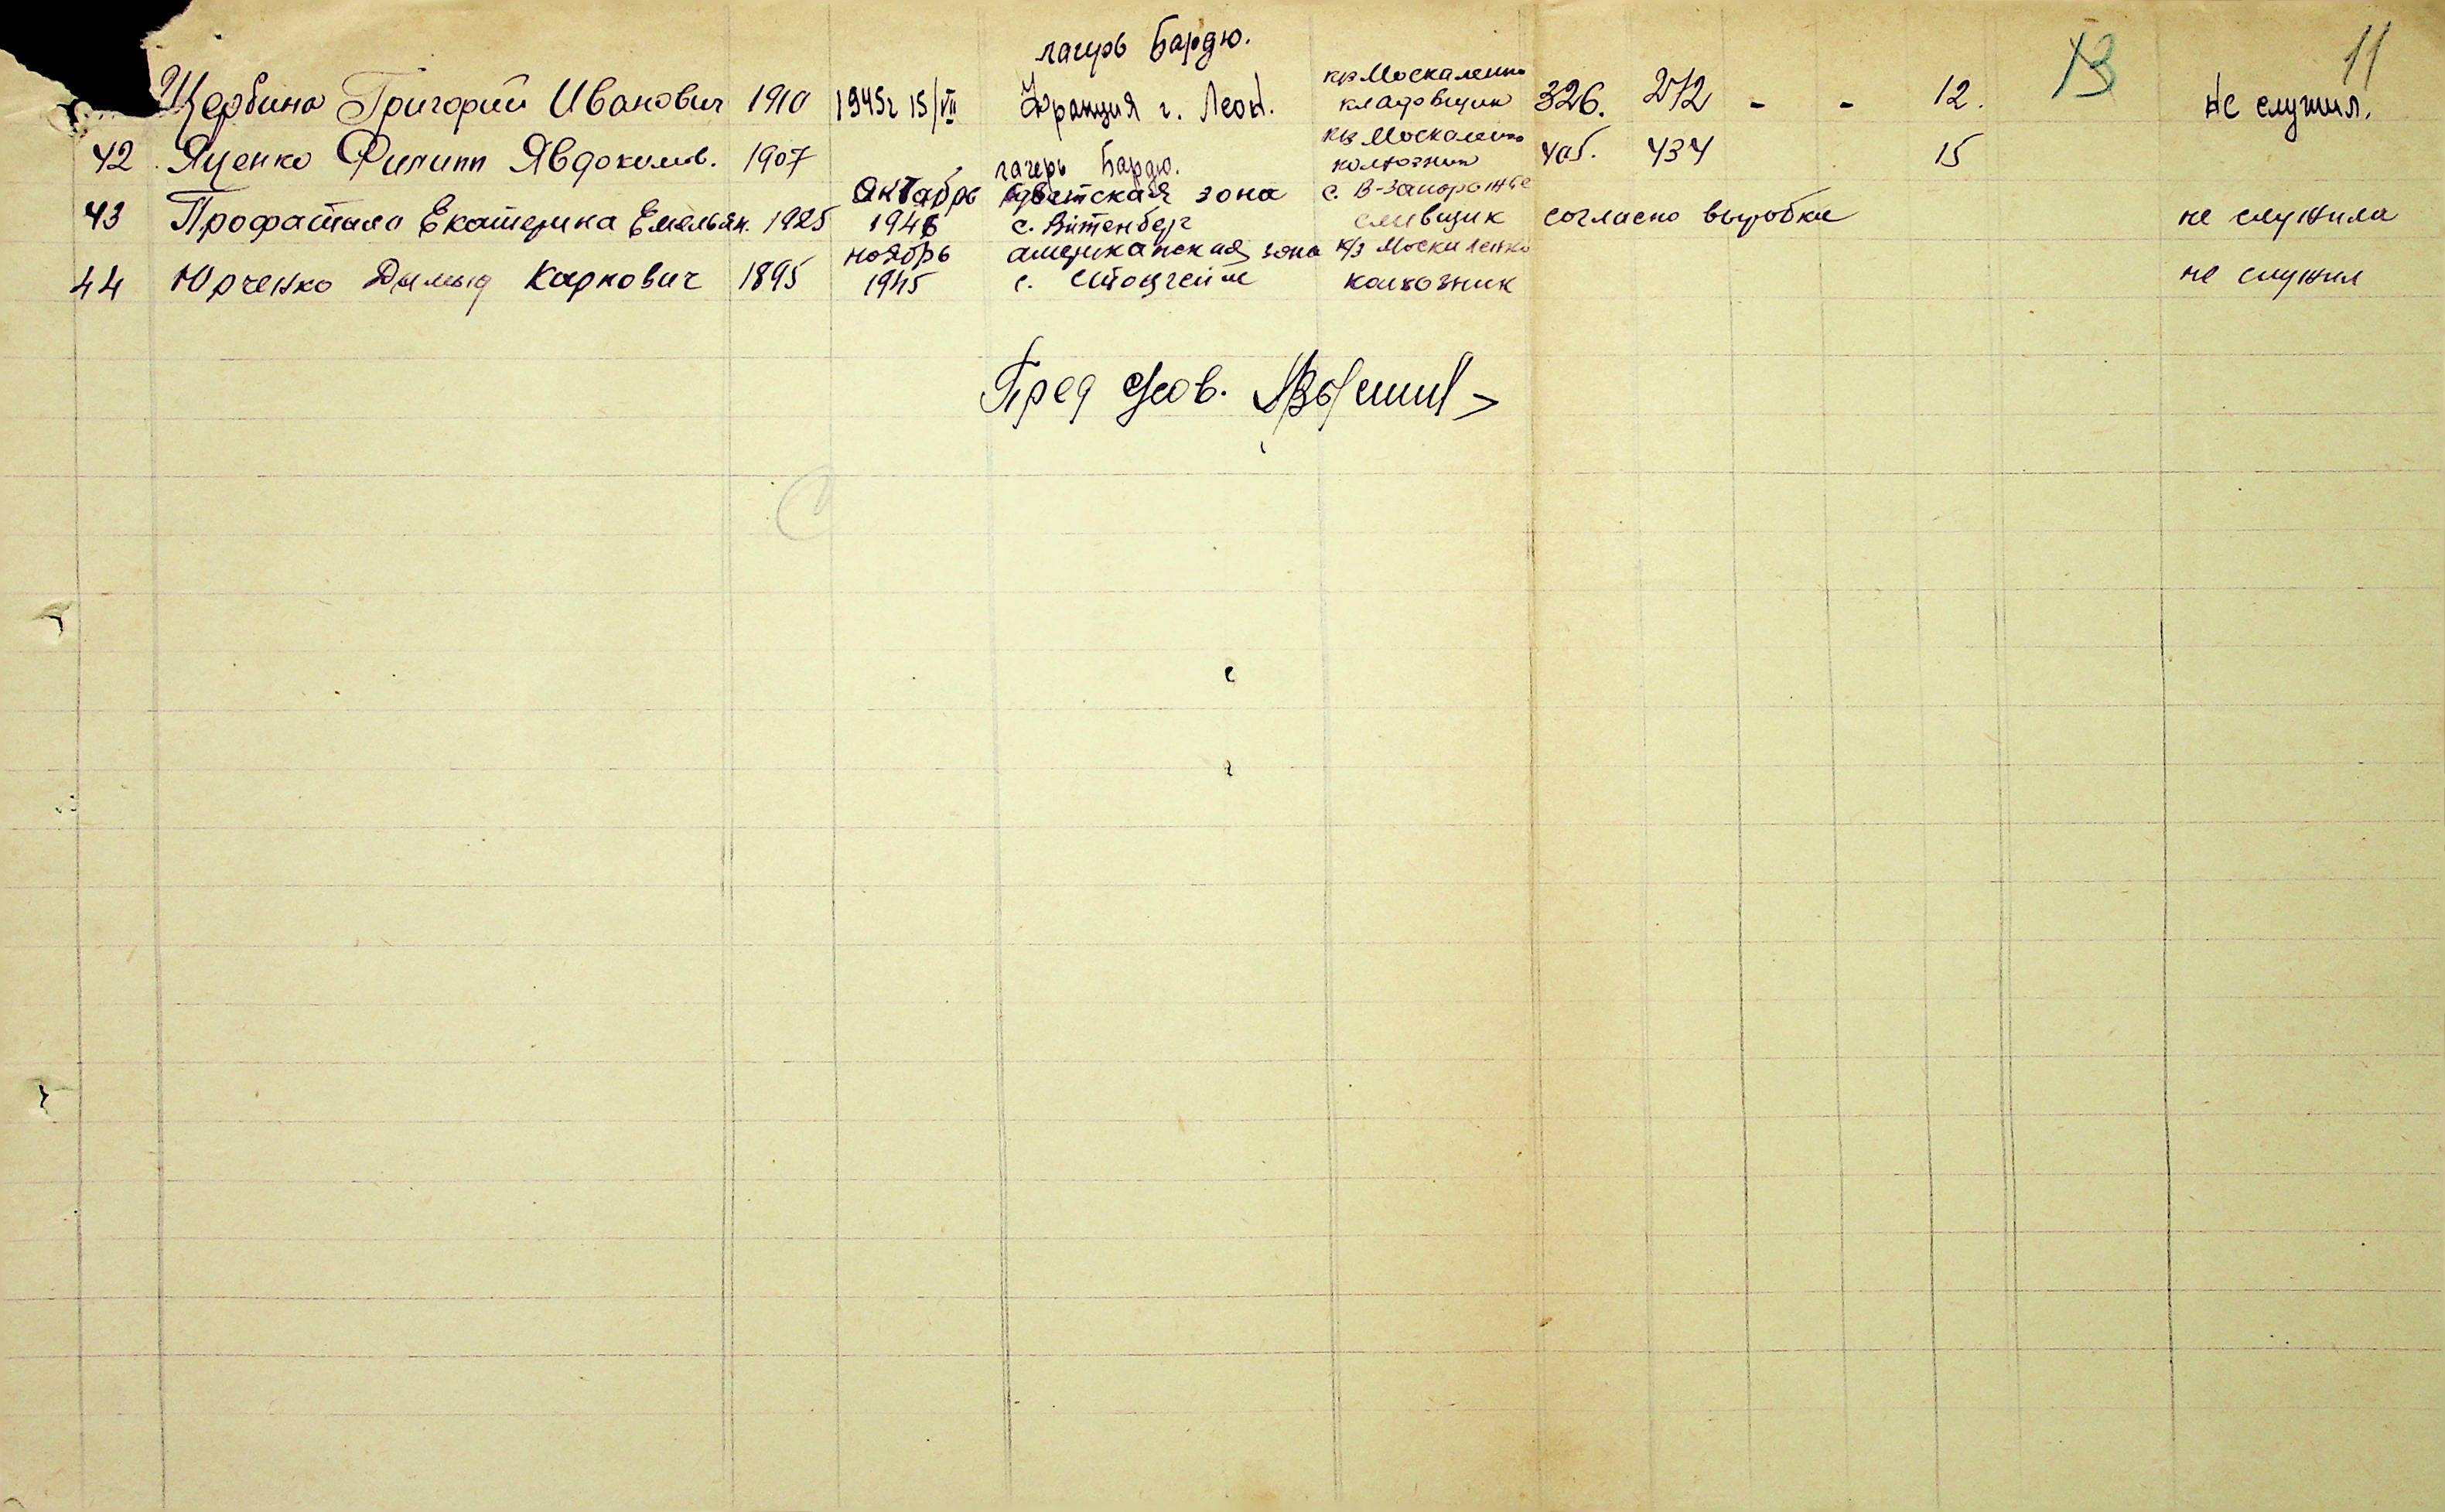 лагерь Бардю.
13
11
Щербина Григорий Иванович 1910 1945г 15/VII Франция г. Леон. к/з Москаленко кладовщик 326. 272 - - 12. не служил.
42 Яценко Филипп Явдоким. 1907 лагерь Бардю. к/з Москаленко колхозник 405. 434 15
43 Профатило Екатерина Емельян. 1925 октябрь 1946 советская зона с. Вiтенберг с. В-Запорожье сливщик согласно выробки не служила
44 Юрченко Дымыд Карпович 1895 ноябрь 1945 американская зона с. Штоцгейм к/з Москаленко колхозник не служил
Пред